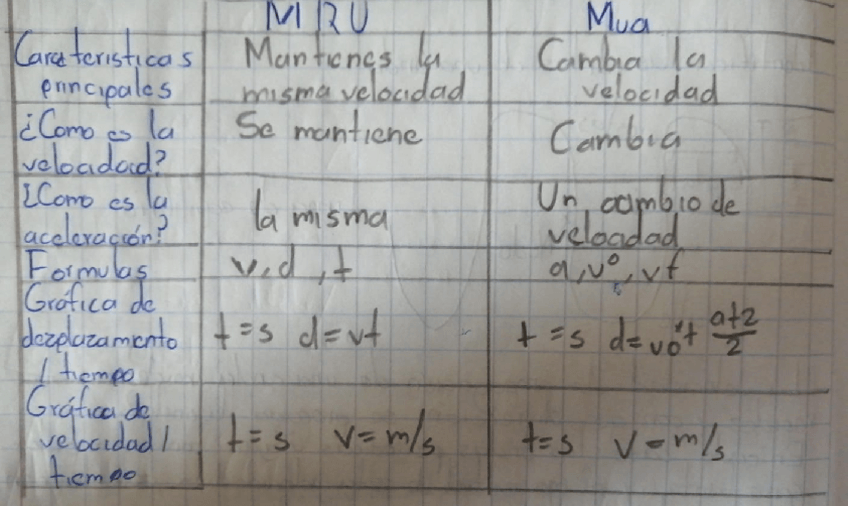 MRU Mua
Caracteristicas Mantienes la Cambia la
principales misma velocidad velocidad
¿Como es la Se mantiene Cambia
velocidad?
¿Como es la la misma Un cambio de
aceleración? velocidad
Formulas v, d, t a, v°, vf
Gráfica de
dezplazamento t=s d=vt t=s d=vo t+ at2/2
/ tiempo
Gráfica de
velocidad/ t=s v=m/s t=s v=m/s
tiempo